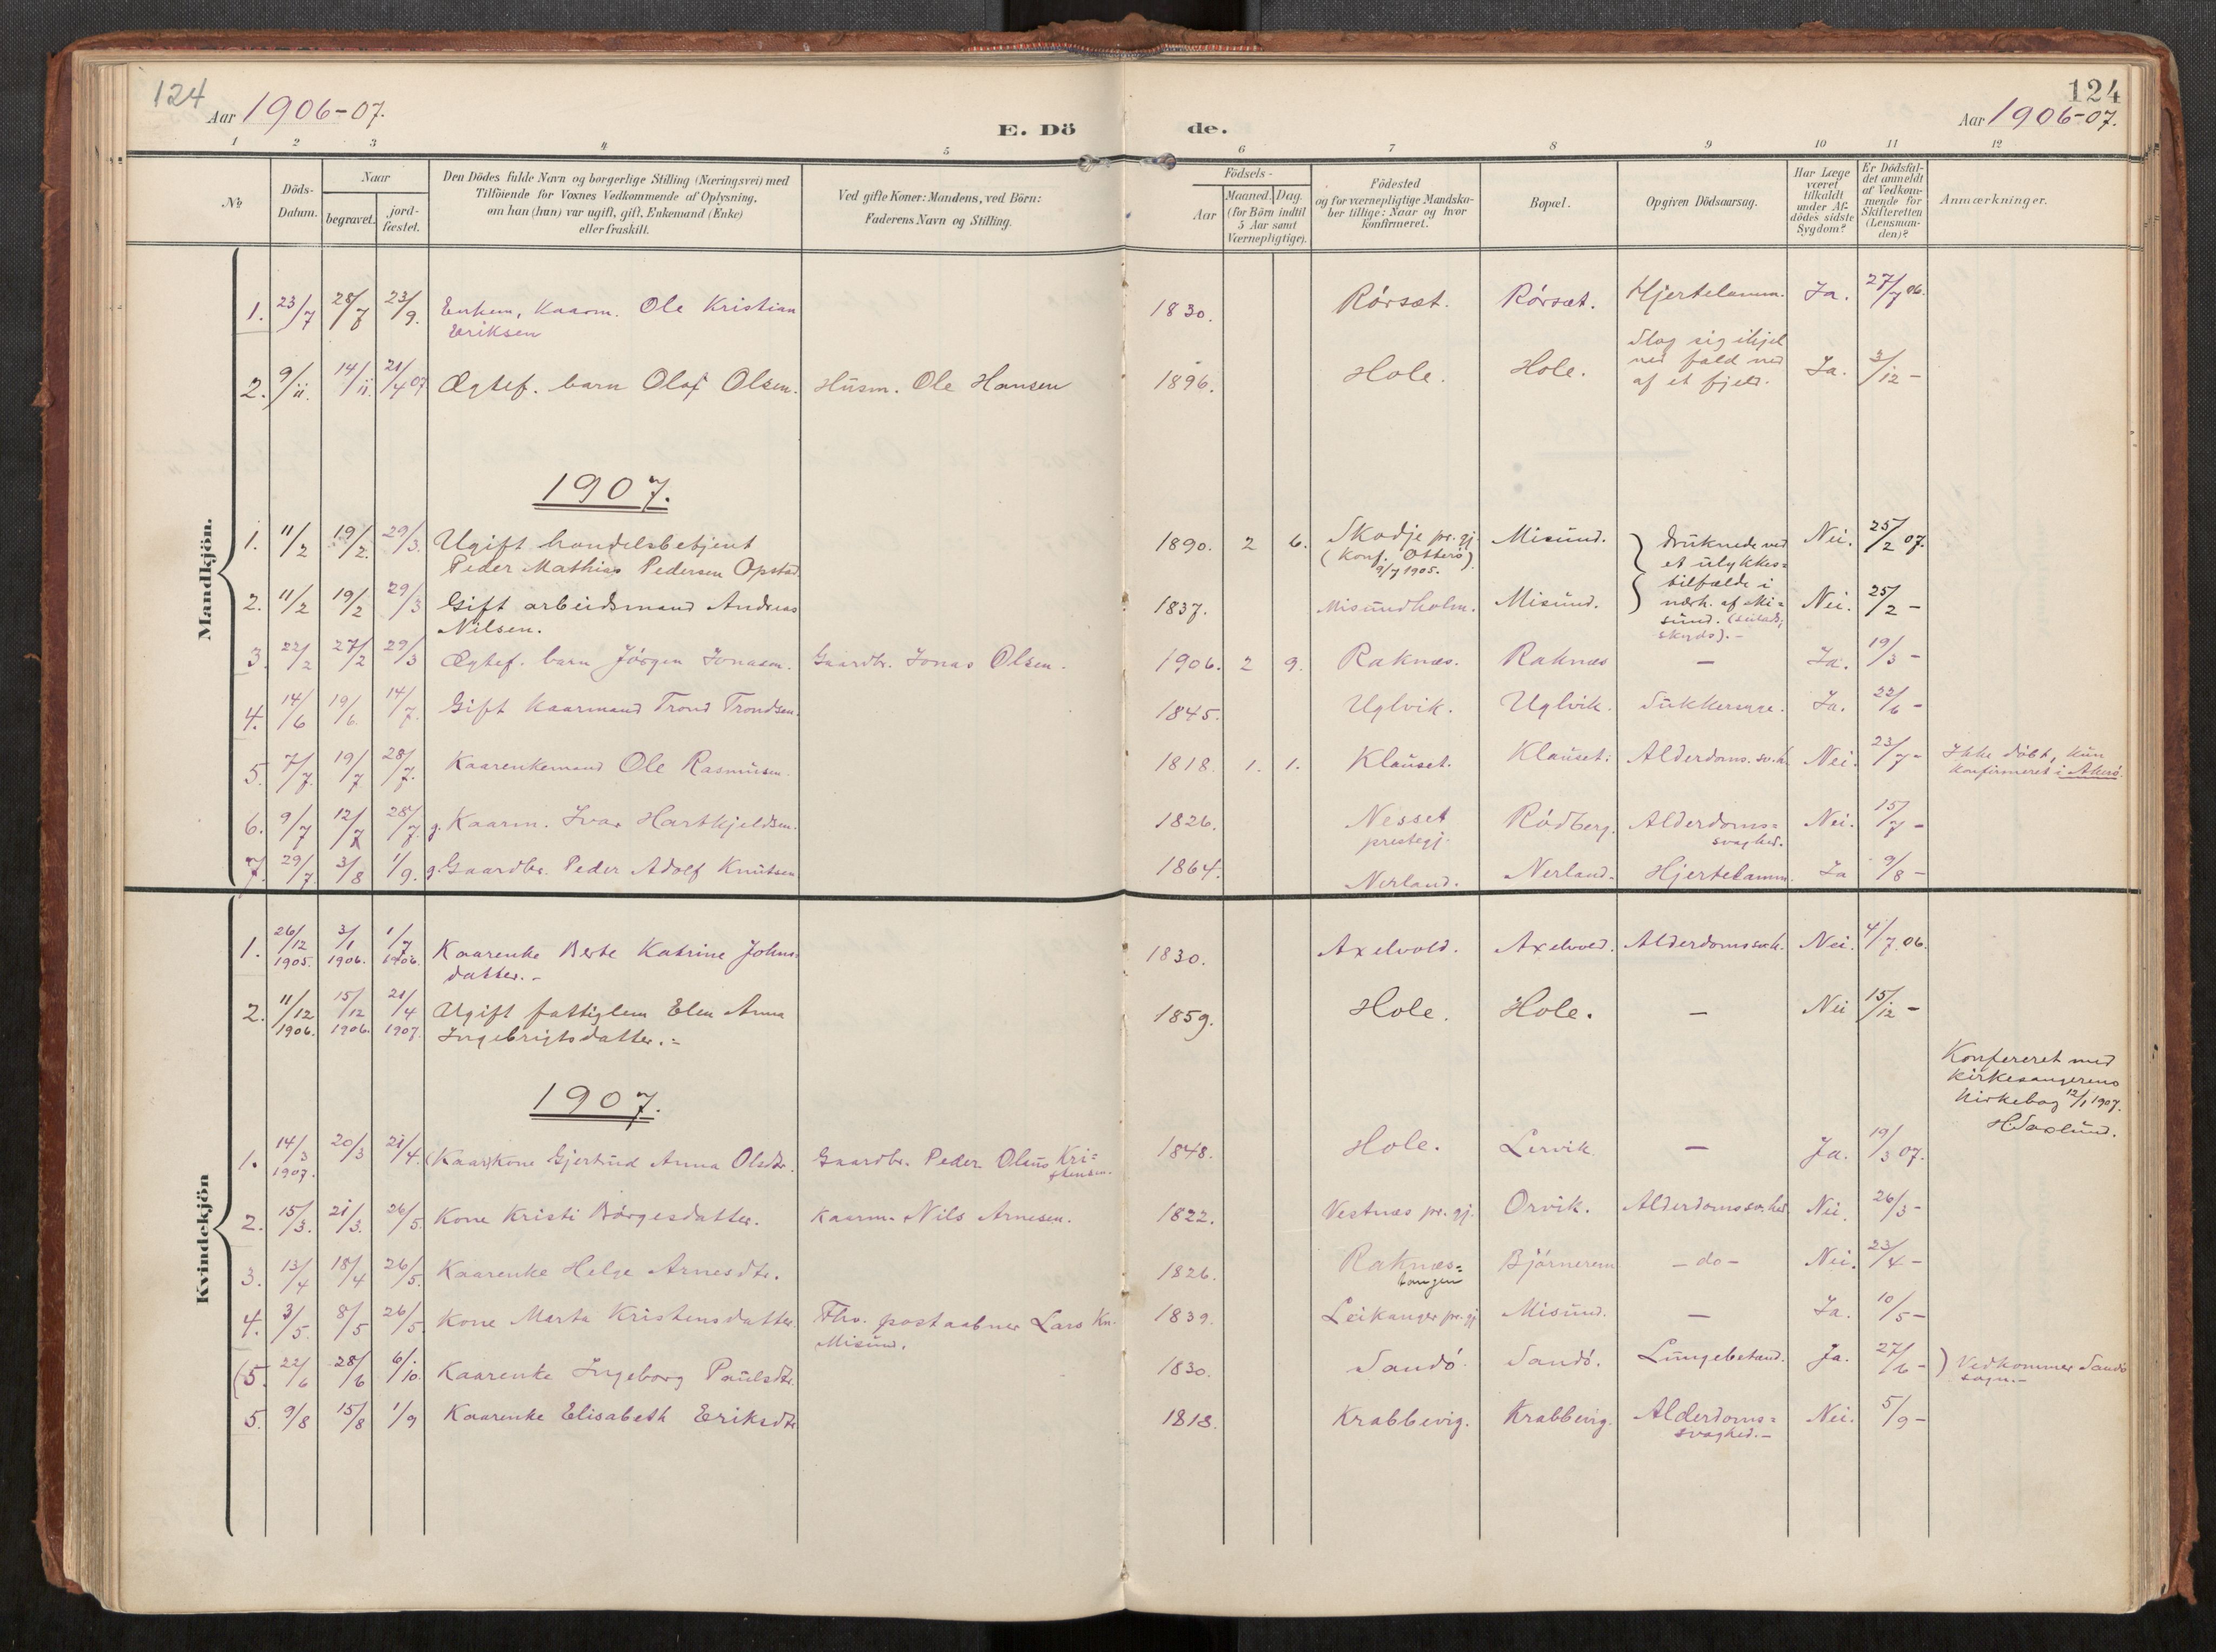 124
Aar 1906-07.
E. Dö
de.
124
Aar 1906-07.
1 2 3 4 5 6 7 8 9 10 11 12
No
Döds-Datum.
Naar
begravet.
jord-fæstet.
Den Dödes fulde Navn og borgerlige Stilling (Næringsvei) med
Tilföiende for Voxnes Vedkommende af Oplysning,
om han (hun) var ugift, gift, Enkemand (Enke)
eller fraskilt.
Ved gifte Koner: Mandens, ved Börn:
Faderens Navn og Stilling.
Födsels-
Aar
Maaned. Dag.
(for Börn indtil
5 Aar samt
Værnepligtige).
Födested
og for værnepligtige Mandska-
ber tillige: Naar og hvor
konfirmeret.
Bopæl.
Opgiven Dödsaarsag.
Har Læge
været
tilkaldt
under Af-
dödes sidste
Sygdom?
Er Dödsfal-
det anmeldt
af Vedkom-
mende for
Skifteretten
(Lensman-
den)?
Anmærkninger.
Mandkjön.
1. 23/7 28/7 23/9. Enkem, Kaarm. Ole Kristian 1830. Rörsæt. Rörsæt. Hjertelamm. Ja. 27/7 06.
Eriksen
2. 9/11. 14/11. 21/4 07 Ægtef. barn Olaf Olsen. Husm. Ole Hansen 1896. Hole. Hole. Slog sig ihjel
ved fald ned
af et fjeld. Ja. 3/12 -
1907.
1. 11/2 19/2. 29/3. Ugift handelsbetjent 1890. 2 6. Skodje pr.gj. Misund. druknede ved Nei. 25/2 07.
Peder Mathias Pedersen Opstad. (Konf. Otterö). et ulykkes=
9/7 1905. tilfælde i
2. 11/2 19/2 29/3 Gift arbeidsmand Andreas 1837. Misundholm. Misund. nærh. af Mi= Nei. 25/2 -
Nilsen. sund.
skyds).-
3. 22/2 27/2 29/3 Ægtef. barn Jörgen Jonasen. Gaardbr. Jonas Olsen. 1906. 2 9. Raknæs. Raknæs - Ja. 19/3 -
4. 14/6 19/6. 14/7. Gift Kaarmand Trond Trondsen. 1845. Uglvik. Uglvik. Sukkersyge. Ja. 22/6 -
5. 7/7. 19/7 28/7. Kaarenkemand Ole Rasmusen. 1818. 1. 1. Klauset. Klauset. Alderdoms.sv.h. Nei. 23/7 - Ikke döbt, kun
konfirmeret i Akerö.
6. 9/7 12/7 28/7. g. Kaarm. Ivar Hartkjeldsen. 1826. Nesset Rödberg. Alderdoms= Nei. 15/7 -
prestegj. svaghed.
7. 29/7. 3/8 1/9. g. Gaardbr. Peder Adolf Knutsen 1864. Nerland. Nerland. Hjertelamm. Ja 9/8 -
Kvindekjön
1. 26/12 1905. 3/1 1906. 1/7 1906. Kaarenke Berte Katrine Johns= 1830. Axelvold. Axelvold. Alderdomssvh. Nei. 4/7 06.
datter.-
2. 11/12 1906. 15/12 1906. 21/4 1907. Ugift fattiglem Elen Anna 1859. Hole. Hole. - Nei 15/12 -
Ingebrigtsdatter.-
Konfereret med
kirkesangerens
kirkebog 12/1 1907.
H. Saxlund.
1907.
1. 14/3 1907. 20/3 21/4. (Kaar)kone Gjertrud Anna Olsdtr. Gaardbr. Peder Olaus Kri=
stensen. 1848. Hole. Lervik - Ja. 19/3 07.
2. 15/3. 21/3. 26/5 Kone Kristi Börgesdatter. Kaarm. Nils Arnesen. 1822. Vestnæs pr.gj. Orvik. Alderdomssv.hed Nei. 26/3 -
3. 13/4 18/4 26/5. Kaarenke Helge Arnesdtr. 1826. Raknæs= Björnerem - do - Nei. 23/4 -
tangen
4. 3/5. 8/5 26/5. Kone Marta Kristensdatter. Fhv. postaabner Lars Kn. 1839. Leikanger pr.gj. Misund. - Ja. 10/5 -
Misund.
(5. 22/6 28/6 6/10. Kaarenke Ingeborg Paulsdtr. 1830. Sandö. Sandö. Lungebetænd. Ja. 27/6 - ) Vedkommer Sandö
sogn.-
5. 9/8 15/8 1/9 Kaarenke Elisabeth Eriksdtr 1818. Krabbevig. Krabbevig. Alderdoms= Nei. 5/9 -
svaghed.-